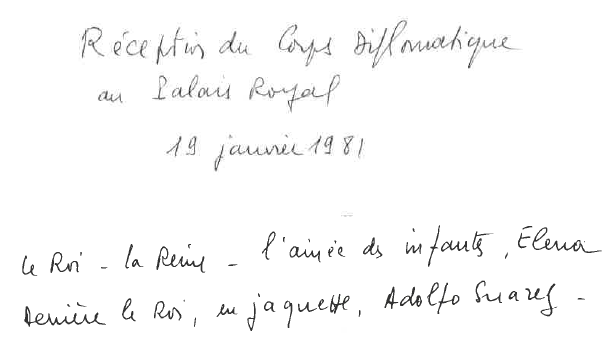 Réception du Corps Diplomatique
au Palais Royal
19 janvier 1981
Le Roi - la Reine - l'ainée des infants, Elena
Derrière le Roi, en jaquette, Adolfo Suarez -